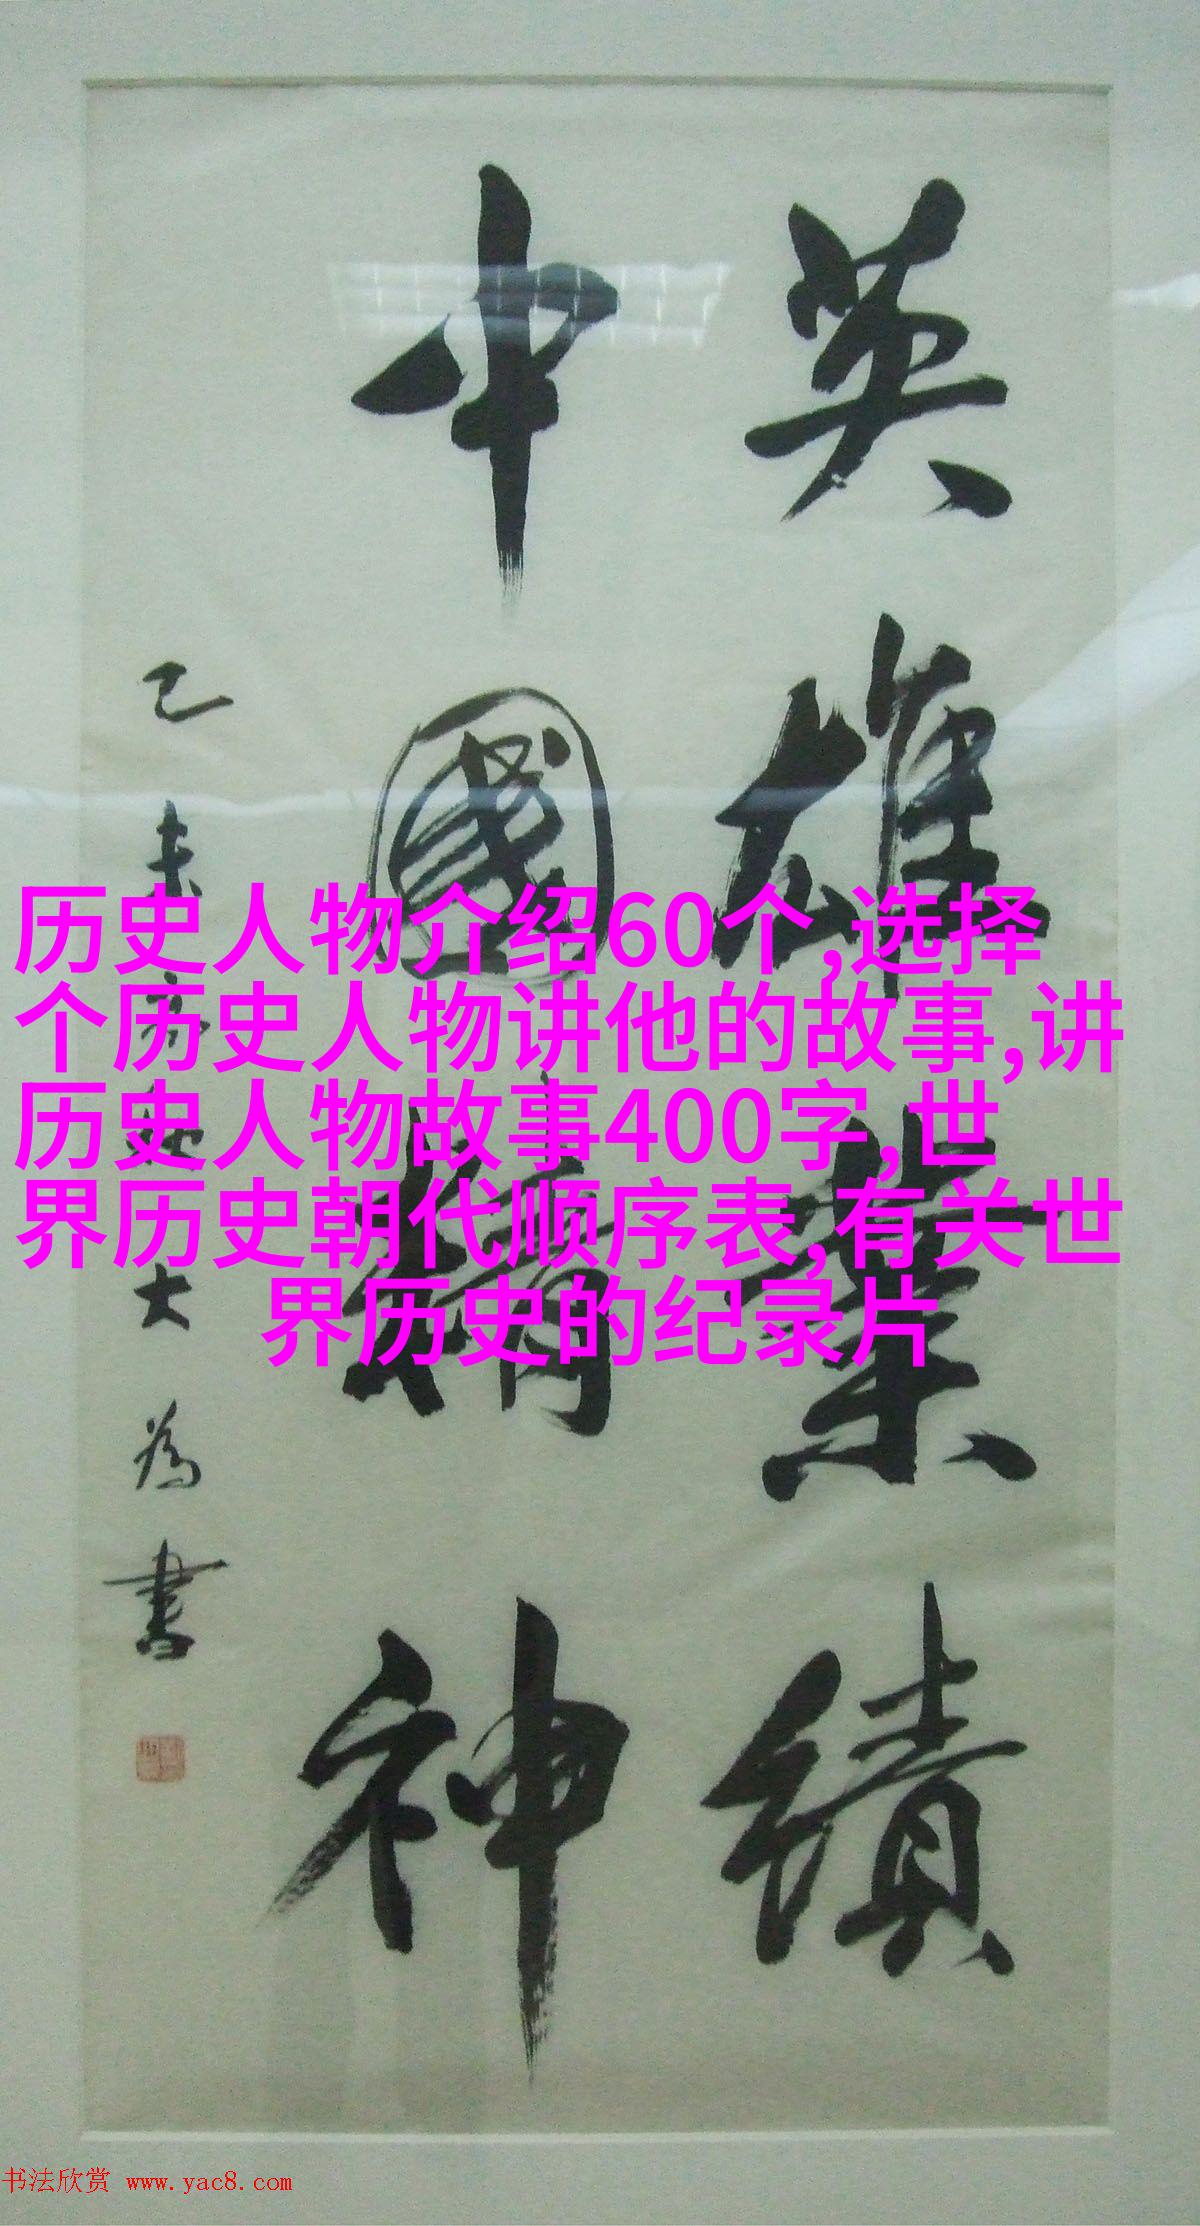 英雄業績
中國精神
乙未
大為書
历史人物介绍60个,选择
个历史人物讲他的故事,讲
历史人物故事400字,世
界历史朝代顺序表,有关世
界历史的纪录片
书法欣赏 www.yac8.com